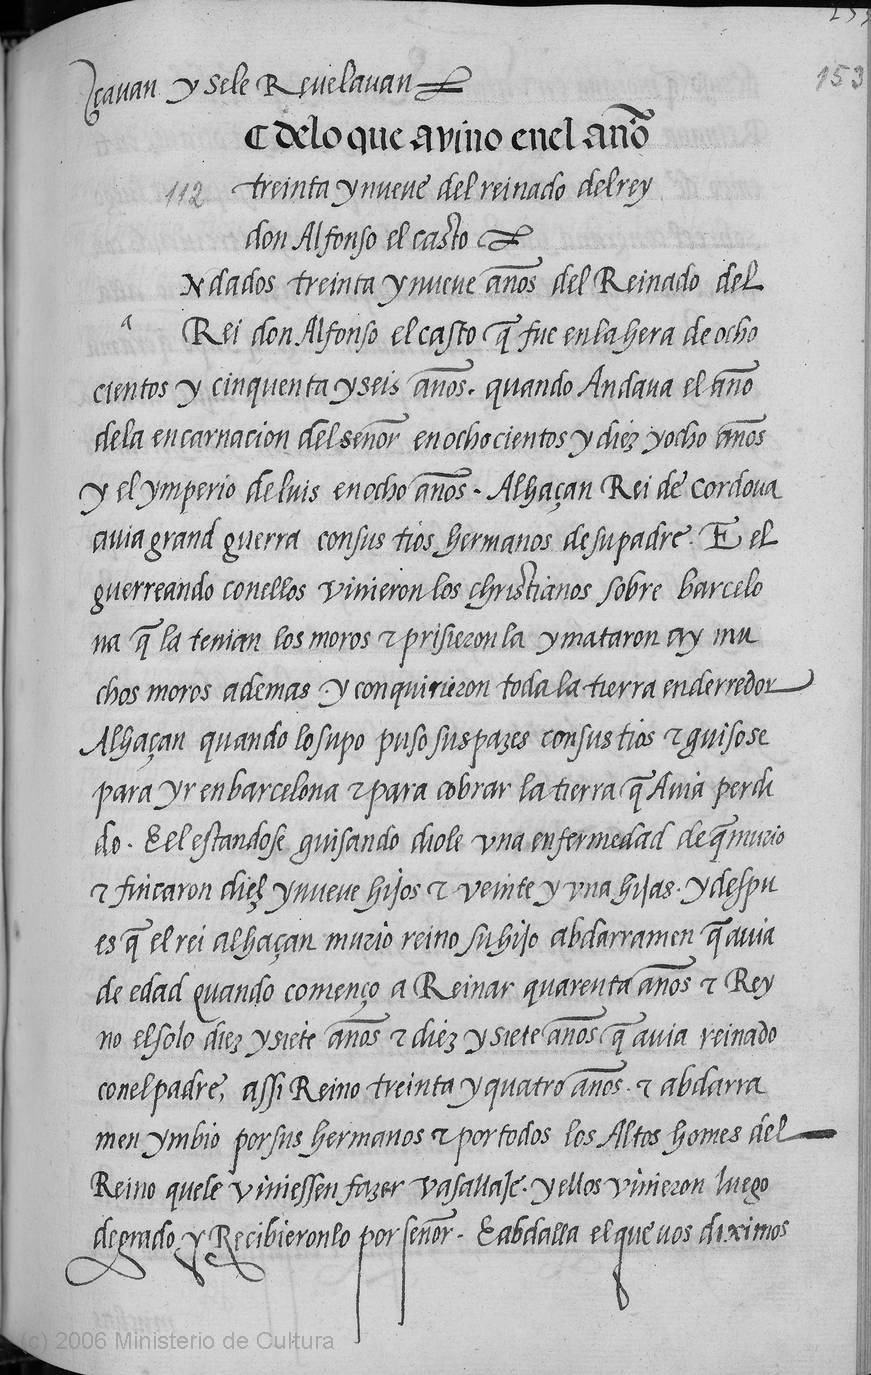 153
çauan y sele Reuelauan
C delo que avino enel año
112 treinta y nueue del reinado del rey
don Alfonso el casto
Ndados treinta y nueue años del Reinado del
a Rei don Alfonso el casto q̃ fue en la hera de ocho
cientos y cinquenta y seis años. quando Andaua el año
dela encarnacion del señor en ochocientos y diez y ocho años
y el ymperio de luis en ocho años. Alhaçan Rei de Cordoua
auia grand guerra con sus tios hermanos de su padre. E el
guerreando conellos vinieron los christianos sobre barcelo
na q̃ la tenian los moros τ prisieron la y mataron ay mu
chos moros ademas. y conquirieron toda la tierra enderredor
Alhaçan quando lo supo puso sus pazes con sus tios τ guisose
para yr en barcelona τ para cobrar la tierra q̃ Auia perdi
do. E el estandose guisando diole vna enfermedad de q̃ murio
τ fincaron diez y nueue hijos τ veinte y vna hijas. y despu
es q̃ el rei alhaçan murio reino su hijo abdarramen q̃ auia
de edad quando començo a Reinar quarenta años τ Rey
no el solo diez y siete años τ diez y siete años q̃ auia reinado
con el padre, assi Reino treinta y quatro años. τ abdarra
men ymbio por sus hermanos τ por todos los Altos homes del
Reino quele viniessen fazer vasallaje. y ellos vinieron luego
de grado y Recibieronlo por señor. E abdalla el que uos diximos
(c) 2006 Ministerio de Cultura